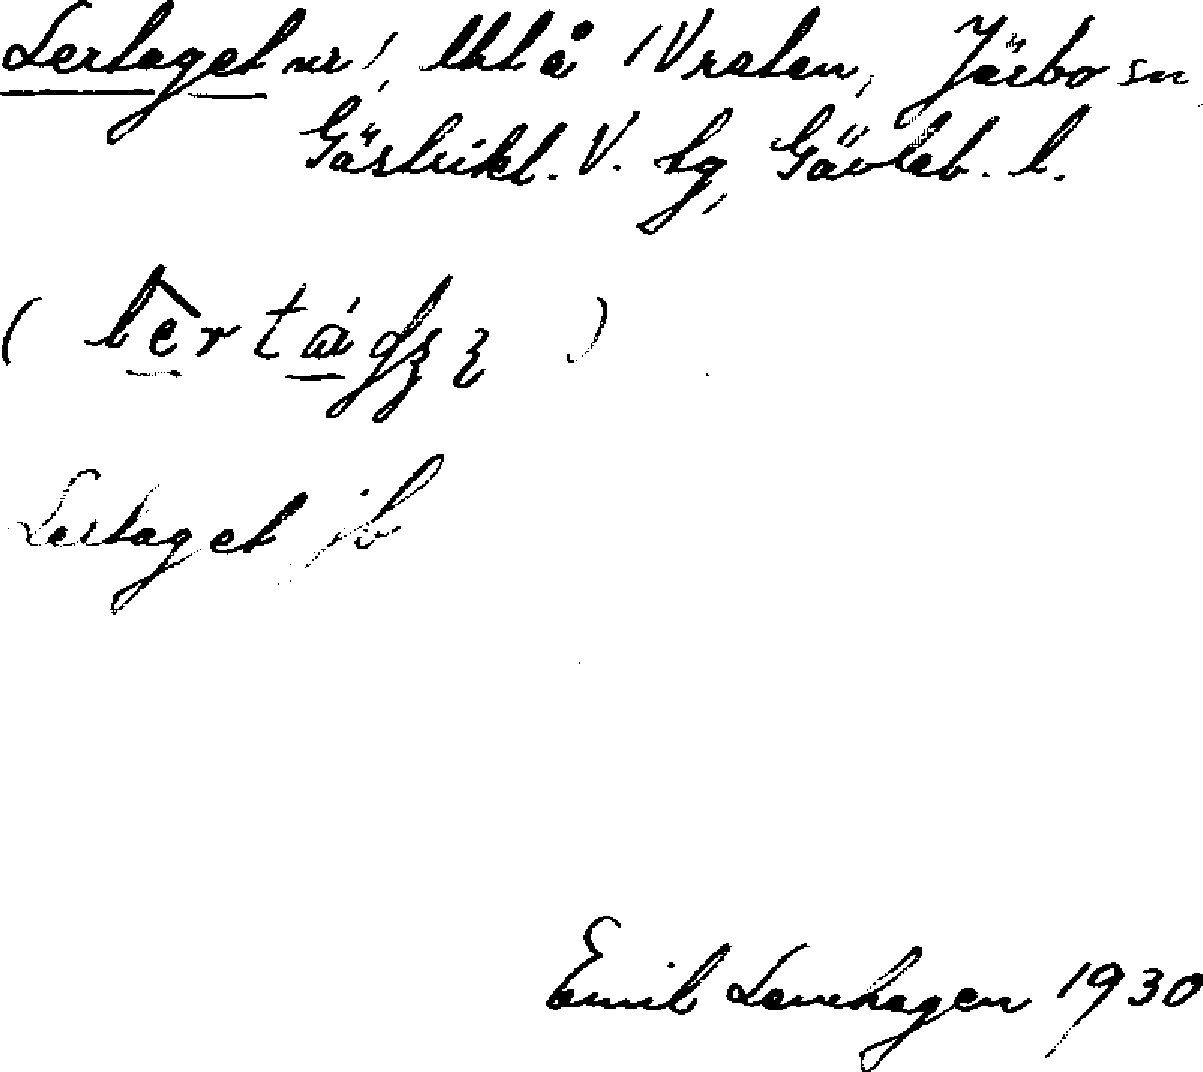 Lertaget nr 1, lht å Vralen, Järbo sn
Gästrikl. V. tg, Gävleb. l.
Lertaget jb
Emil Levehagen 1930